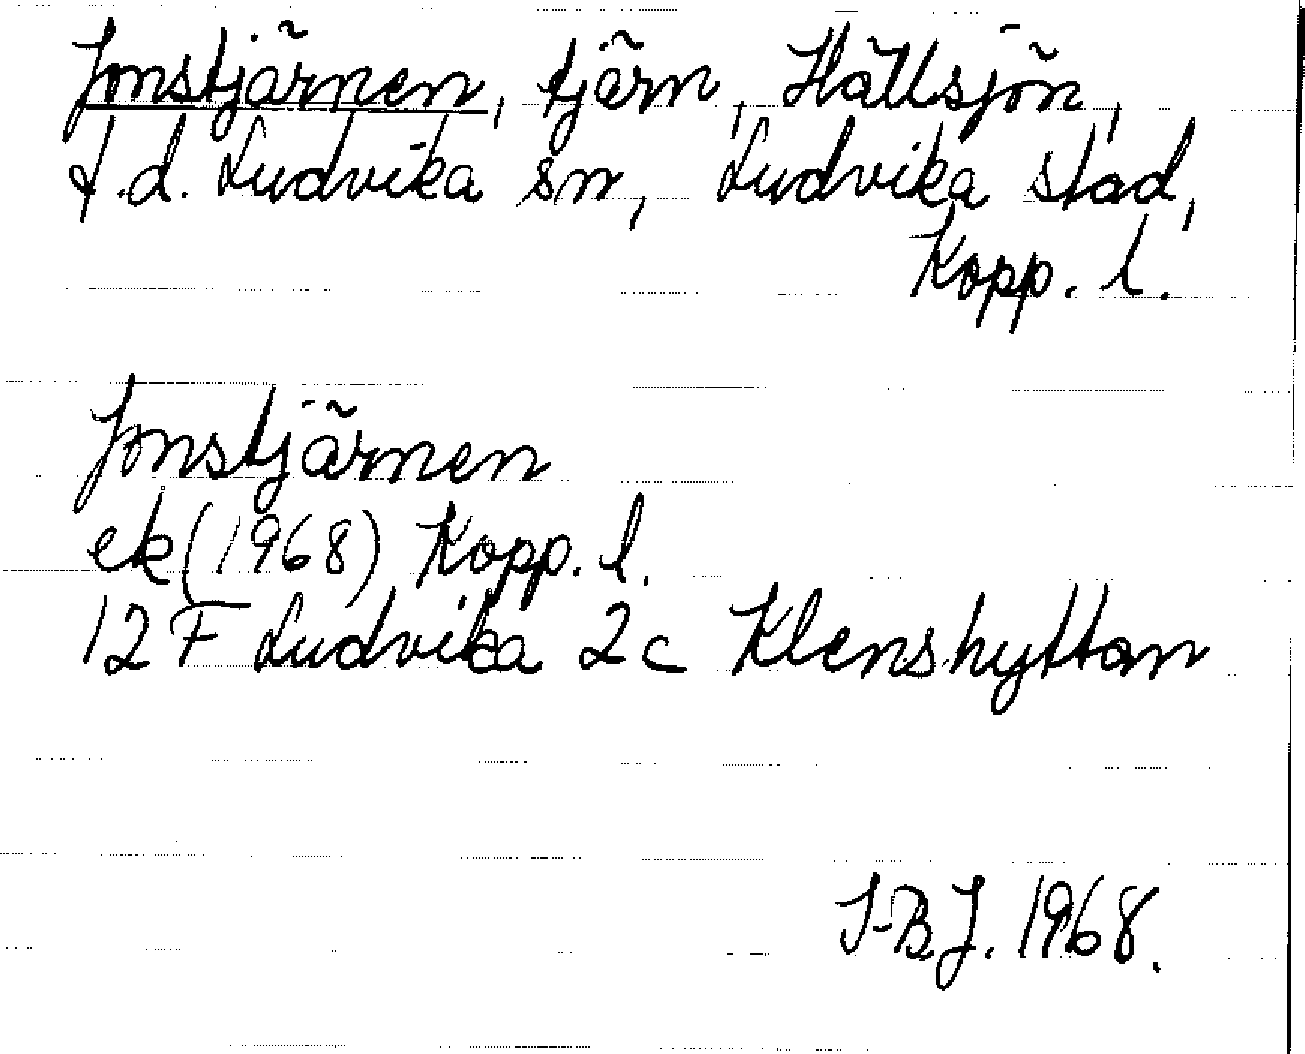 Jonstjärnen, tjärn, Hällsjön,
f.d. Ludvika sn, Ludvika stad,
Kopp. l.
Jonstjärnen
ek (1968) Kopp. l.
12 F Ludvika 2c Klenshyttan
I-B.J. 1968.